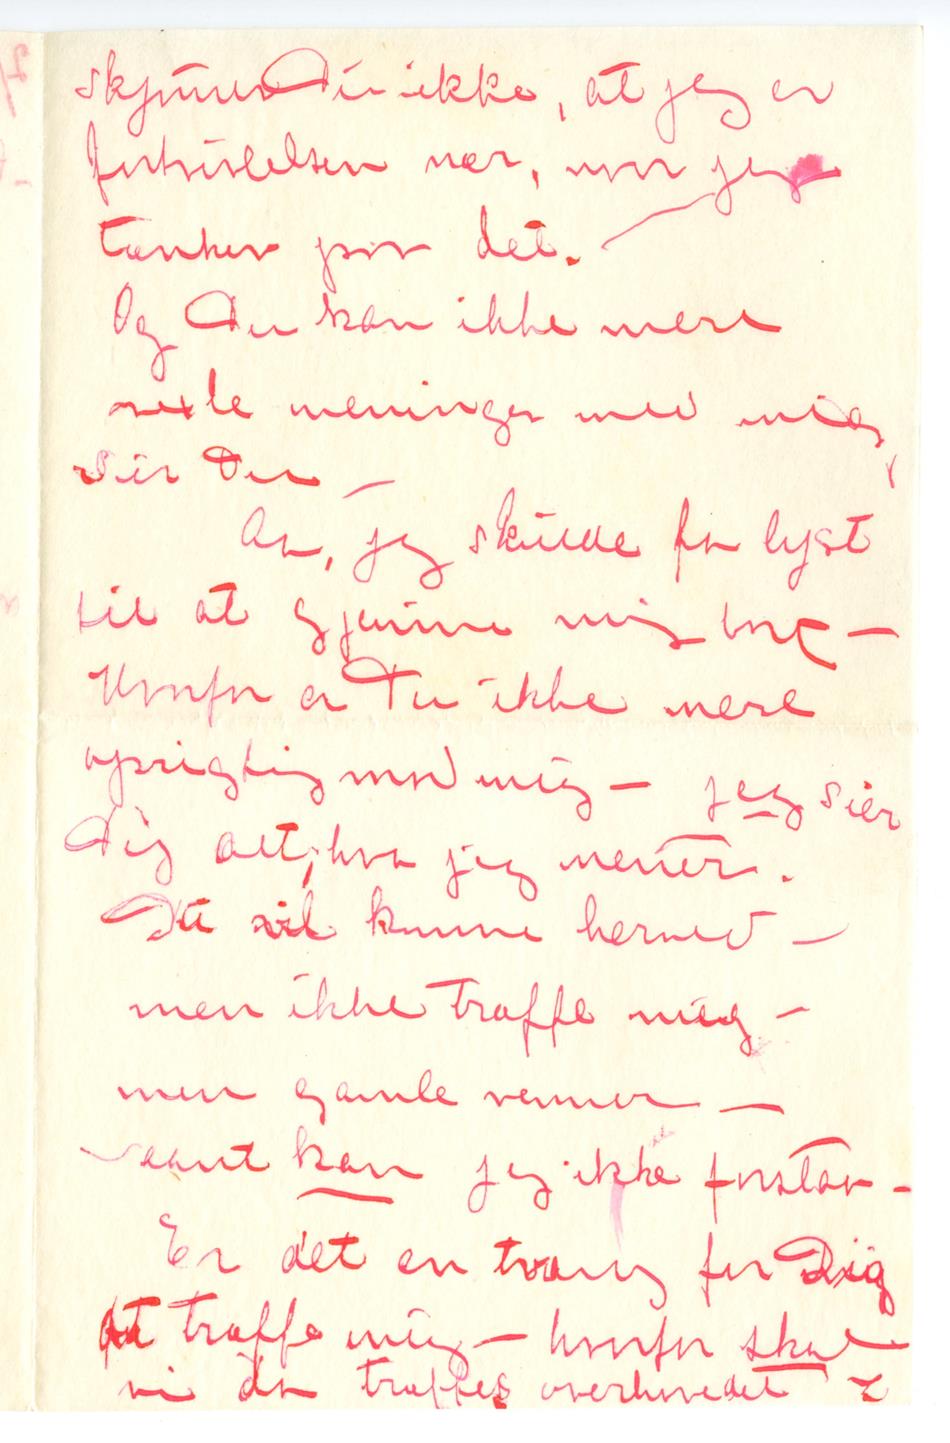 skjønner Du ikke, at jeg er
fortvilelsen nær, naar jeg
tænker paa det.
Og Du kan ikke mere
vexle meninger med mig,
sier Du –
Aa, jeg skulde faa lyst
til at gjemme mig bort –
Hvorfor er Du ikke mere
oprigtig mod mig – jeg sier
Dig alt, hva jeg mener.
Du vil kunne herned –
men ikke træffe mig –
men gamle venner –
saant kan jeg ikke forstaa –
Er det en tvang for Dig
at træffe mig – hvorfor skal
vi da træffes overhovedet ?